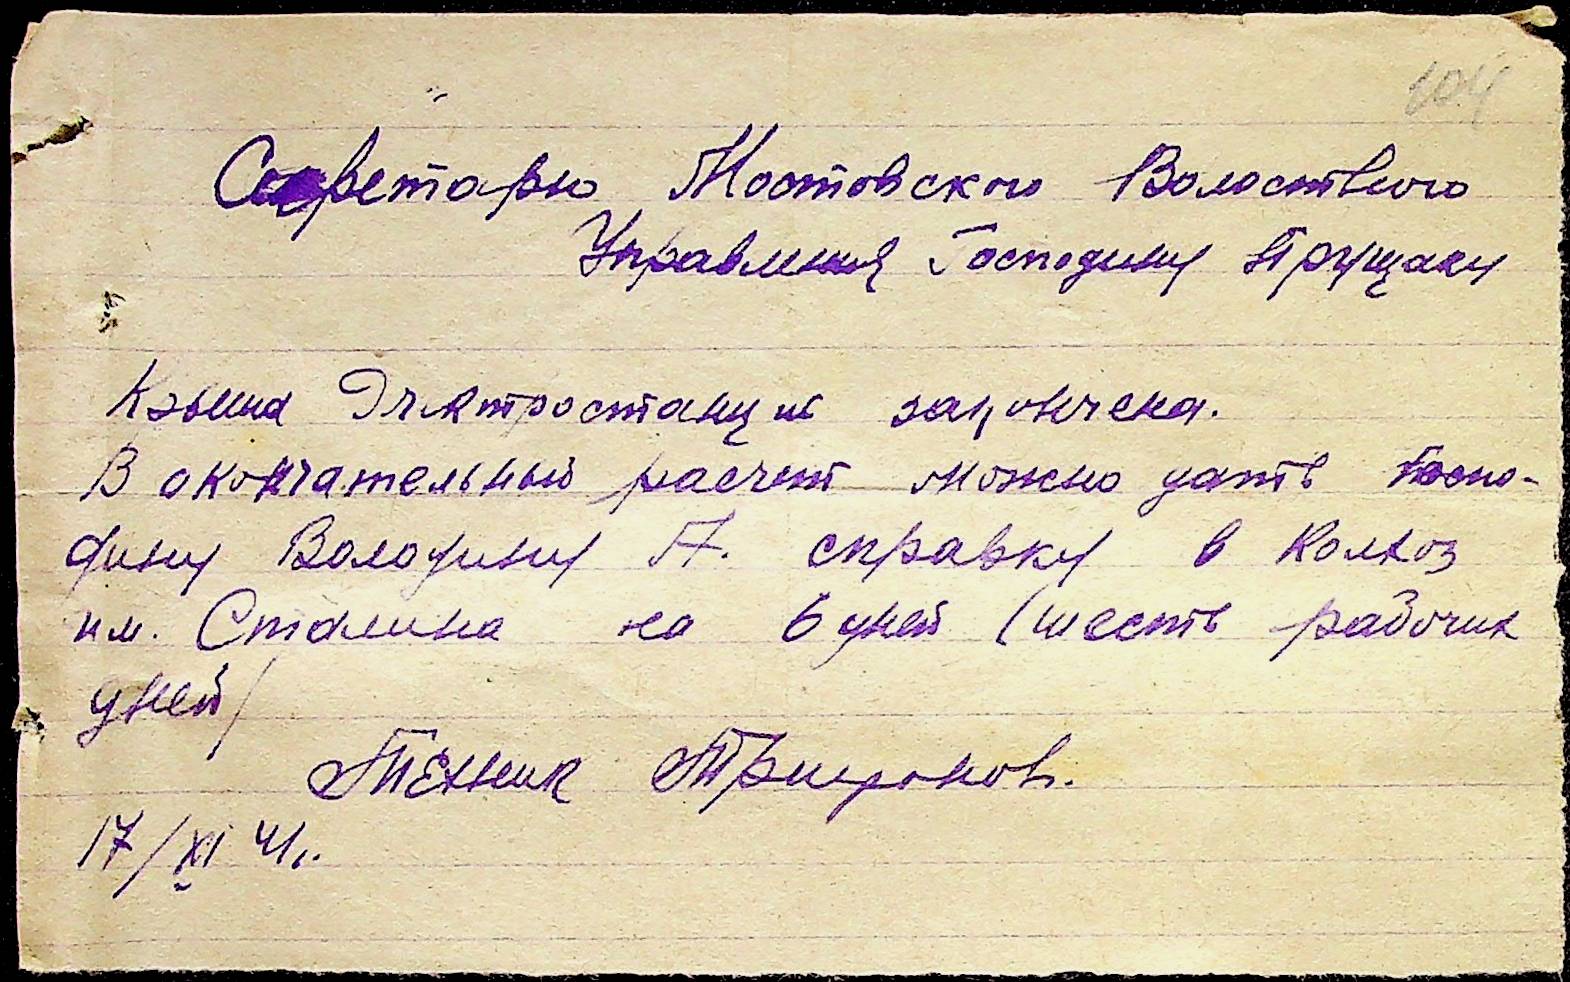 104
Секретарю Мостовского Волоствного
Управления Господину Прущаку
Крыша Электростанции закончена.
В окончательный расчет можно дать Госпо-
дину Володину П. справку в Колхоз
им. Сталина на 6 дней (шесть рабочих
дней)
Техник
17/XI 41г.